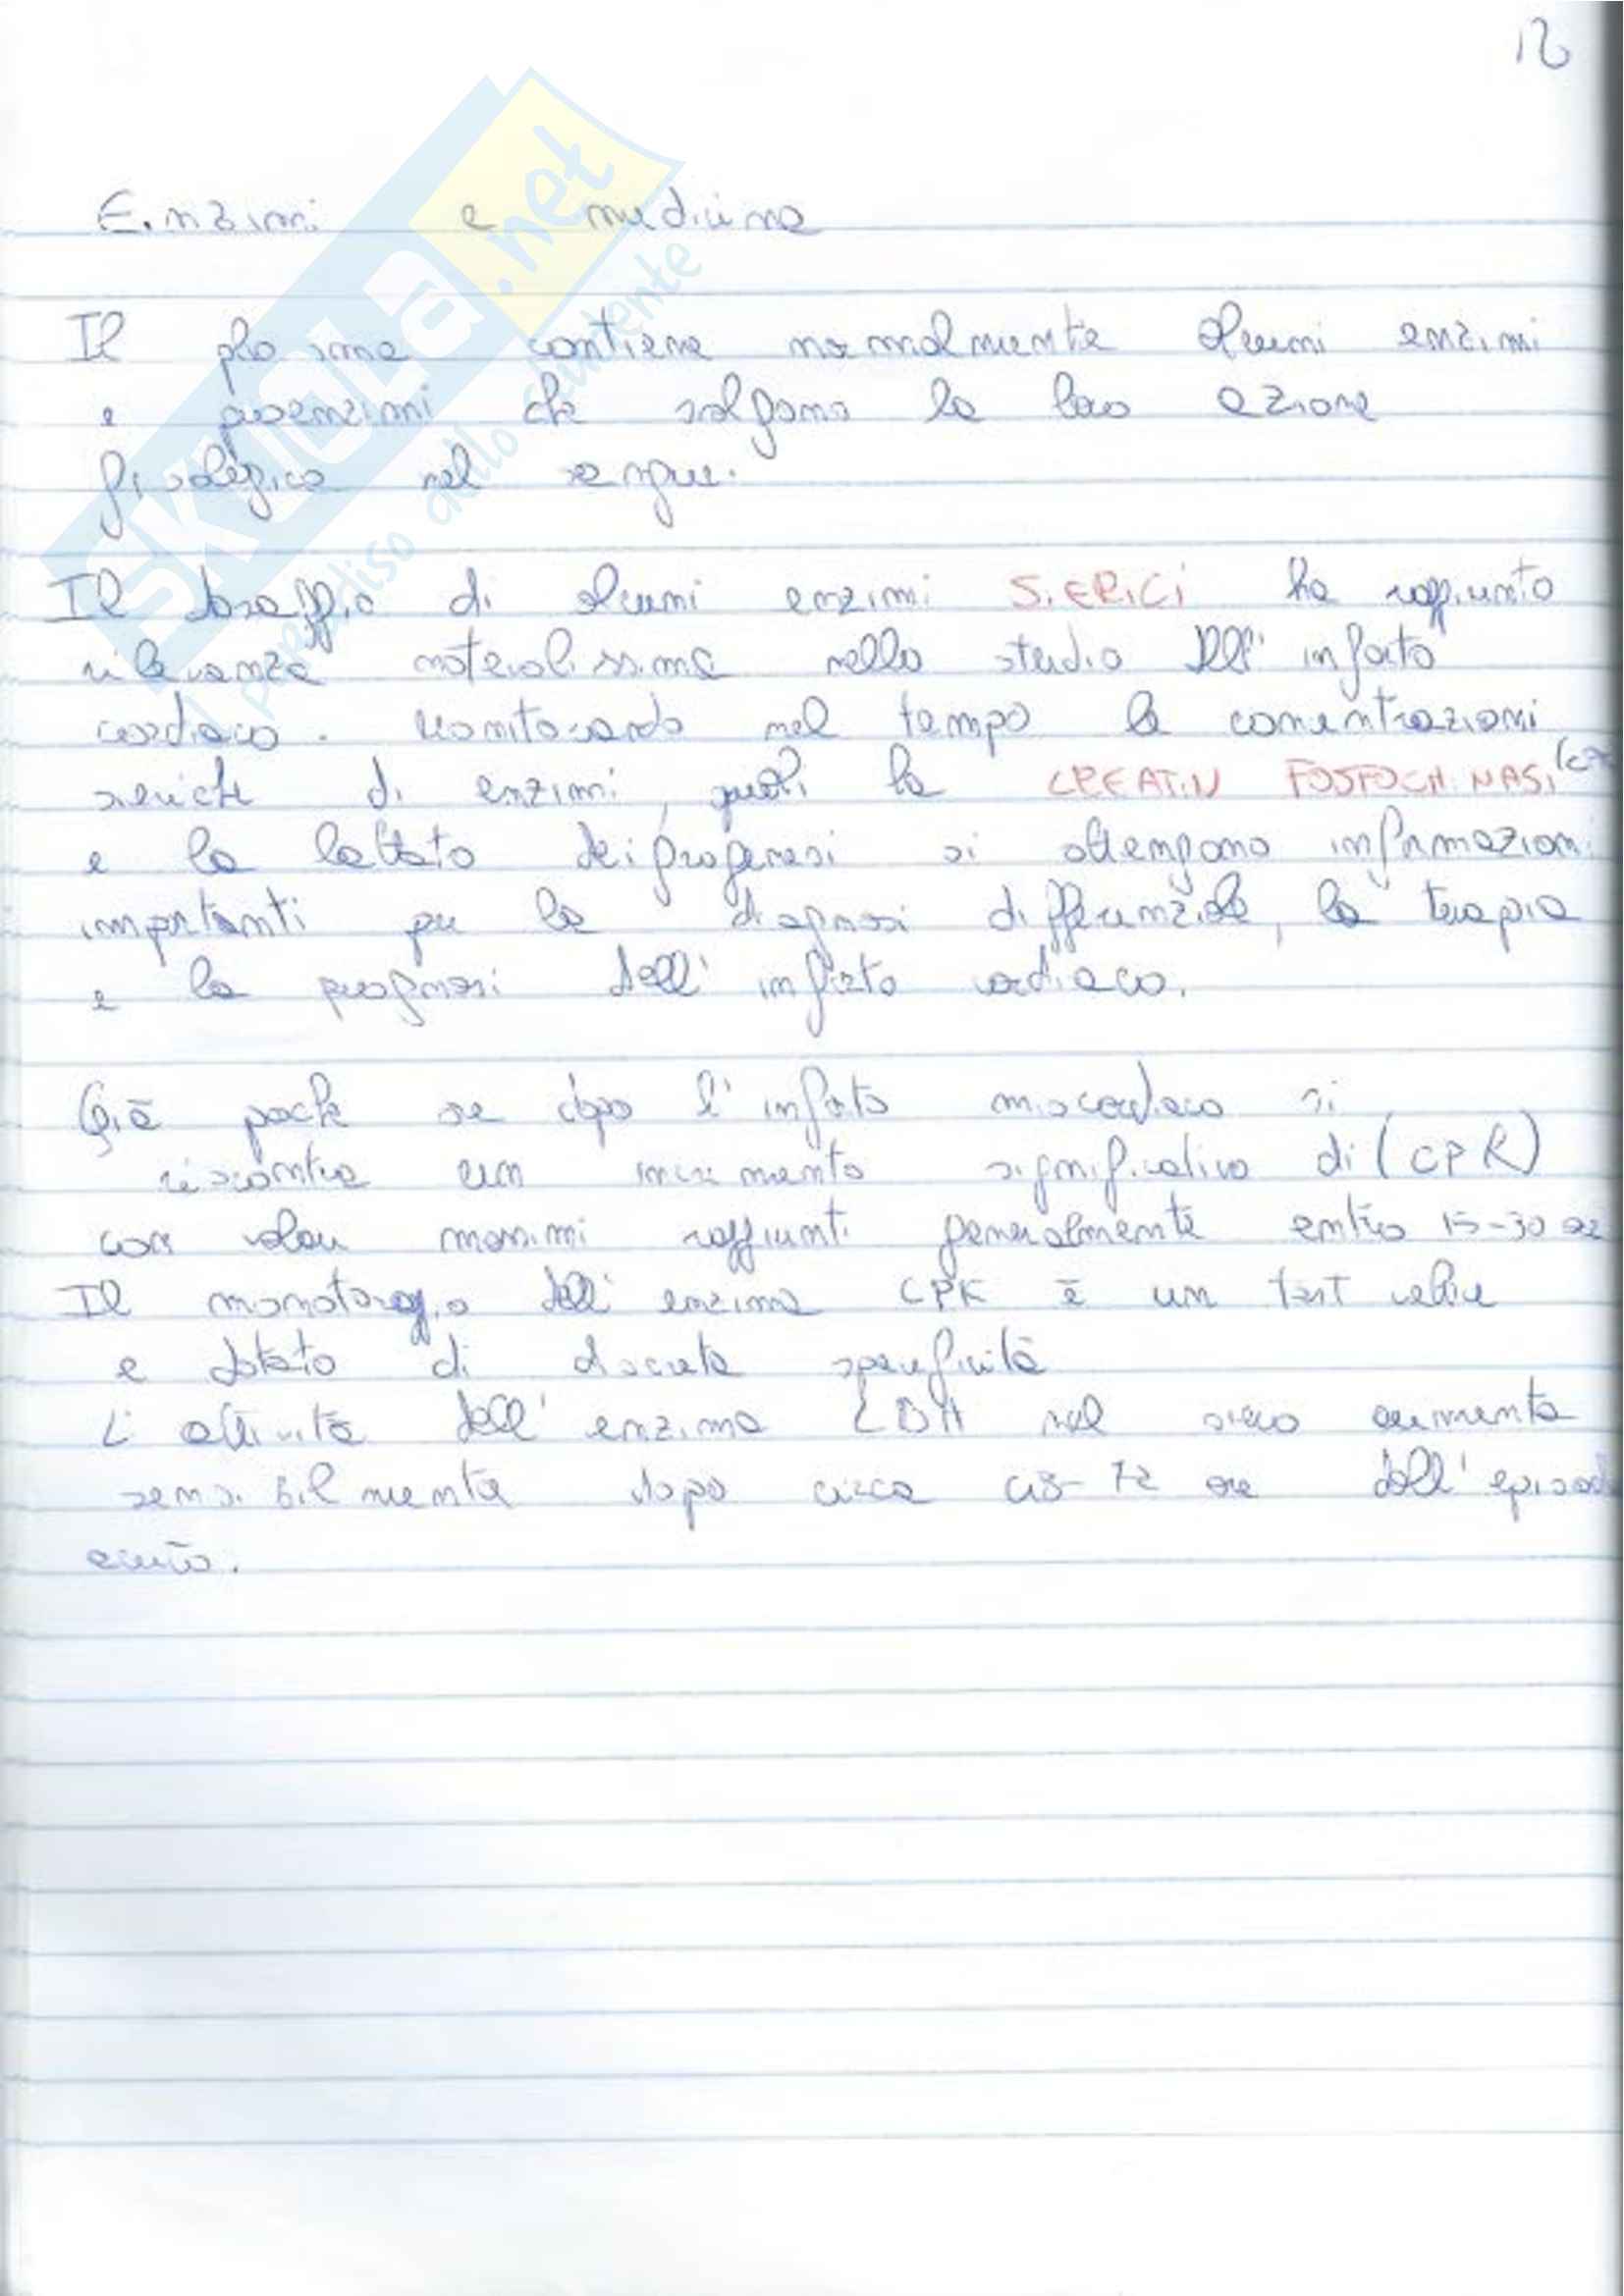 12
Enzimi e medicina
Il plasma contiene normalmente alcuni enzimi
e proenzimi che svolgono la loro azione
fisiologica nel sangue.
Il dosaggio di alcuni enzimi SIERICI ha raggiunto
rilevanza notevolissima nello studio dell'infarto
cardiaco. Monitorando nel tempo le concentrazioni
sieriche di enzimi, quali la CREATIN FOSFOCHINASI
e la lattato deidrogenasi si ottengono informazioni
importanti per la diagnosi differenziale, la terapia
e la prognosi dell'infarto cardiaco.
Già poche ore dopo l'infarto miocardiaco si
riscontra un incremento significativo di (CPK)
con valori massimi raggiunti generalmente entro 15-30 ore
Il monotoraggio dell'enzima CPK è un test veloce
e dotato di discreta specificità
L'attività dell'enzima LDH nel siero aumenta
sensibilmente dopo circa 48-72 ore dall'episodio
acuto.
SKUOLA.net
il paradiso dello studente